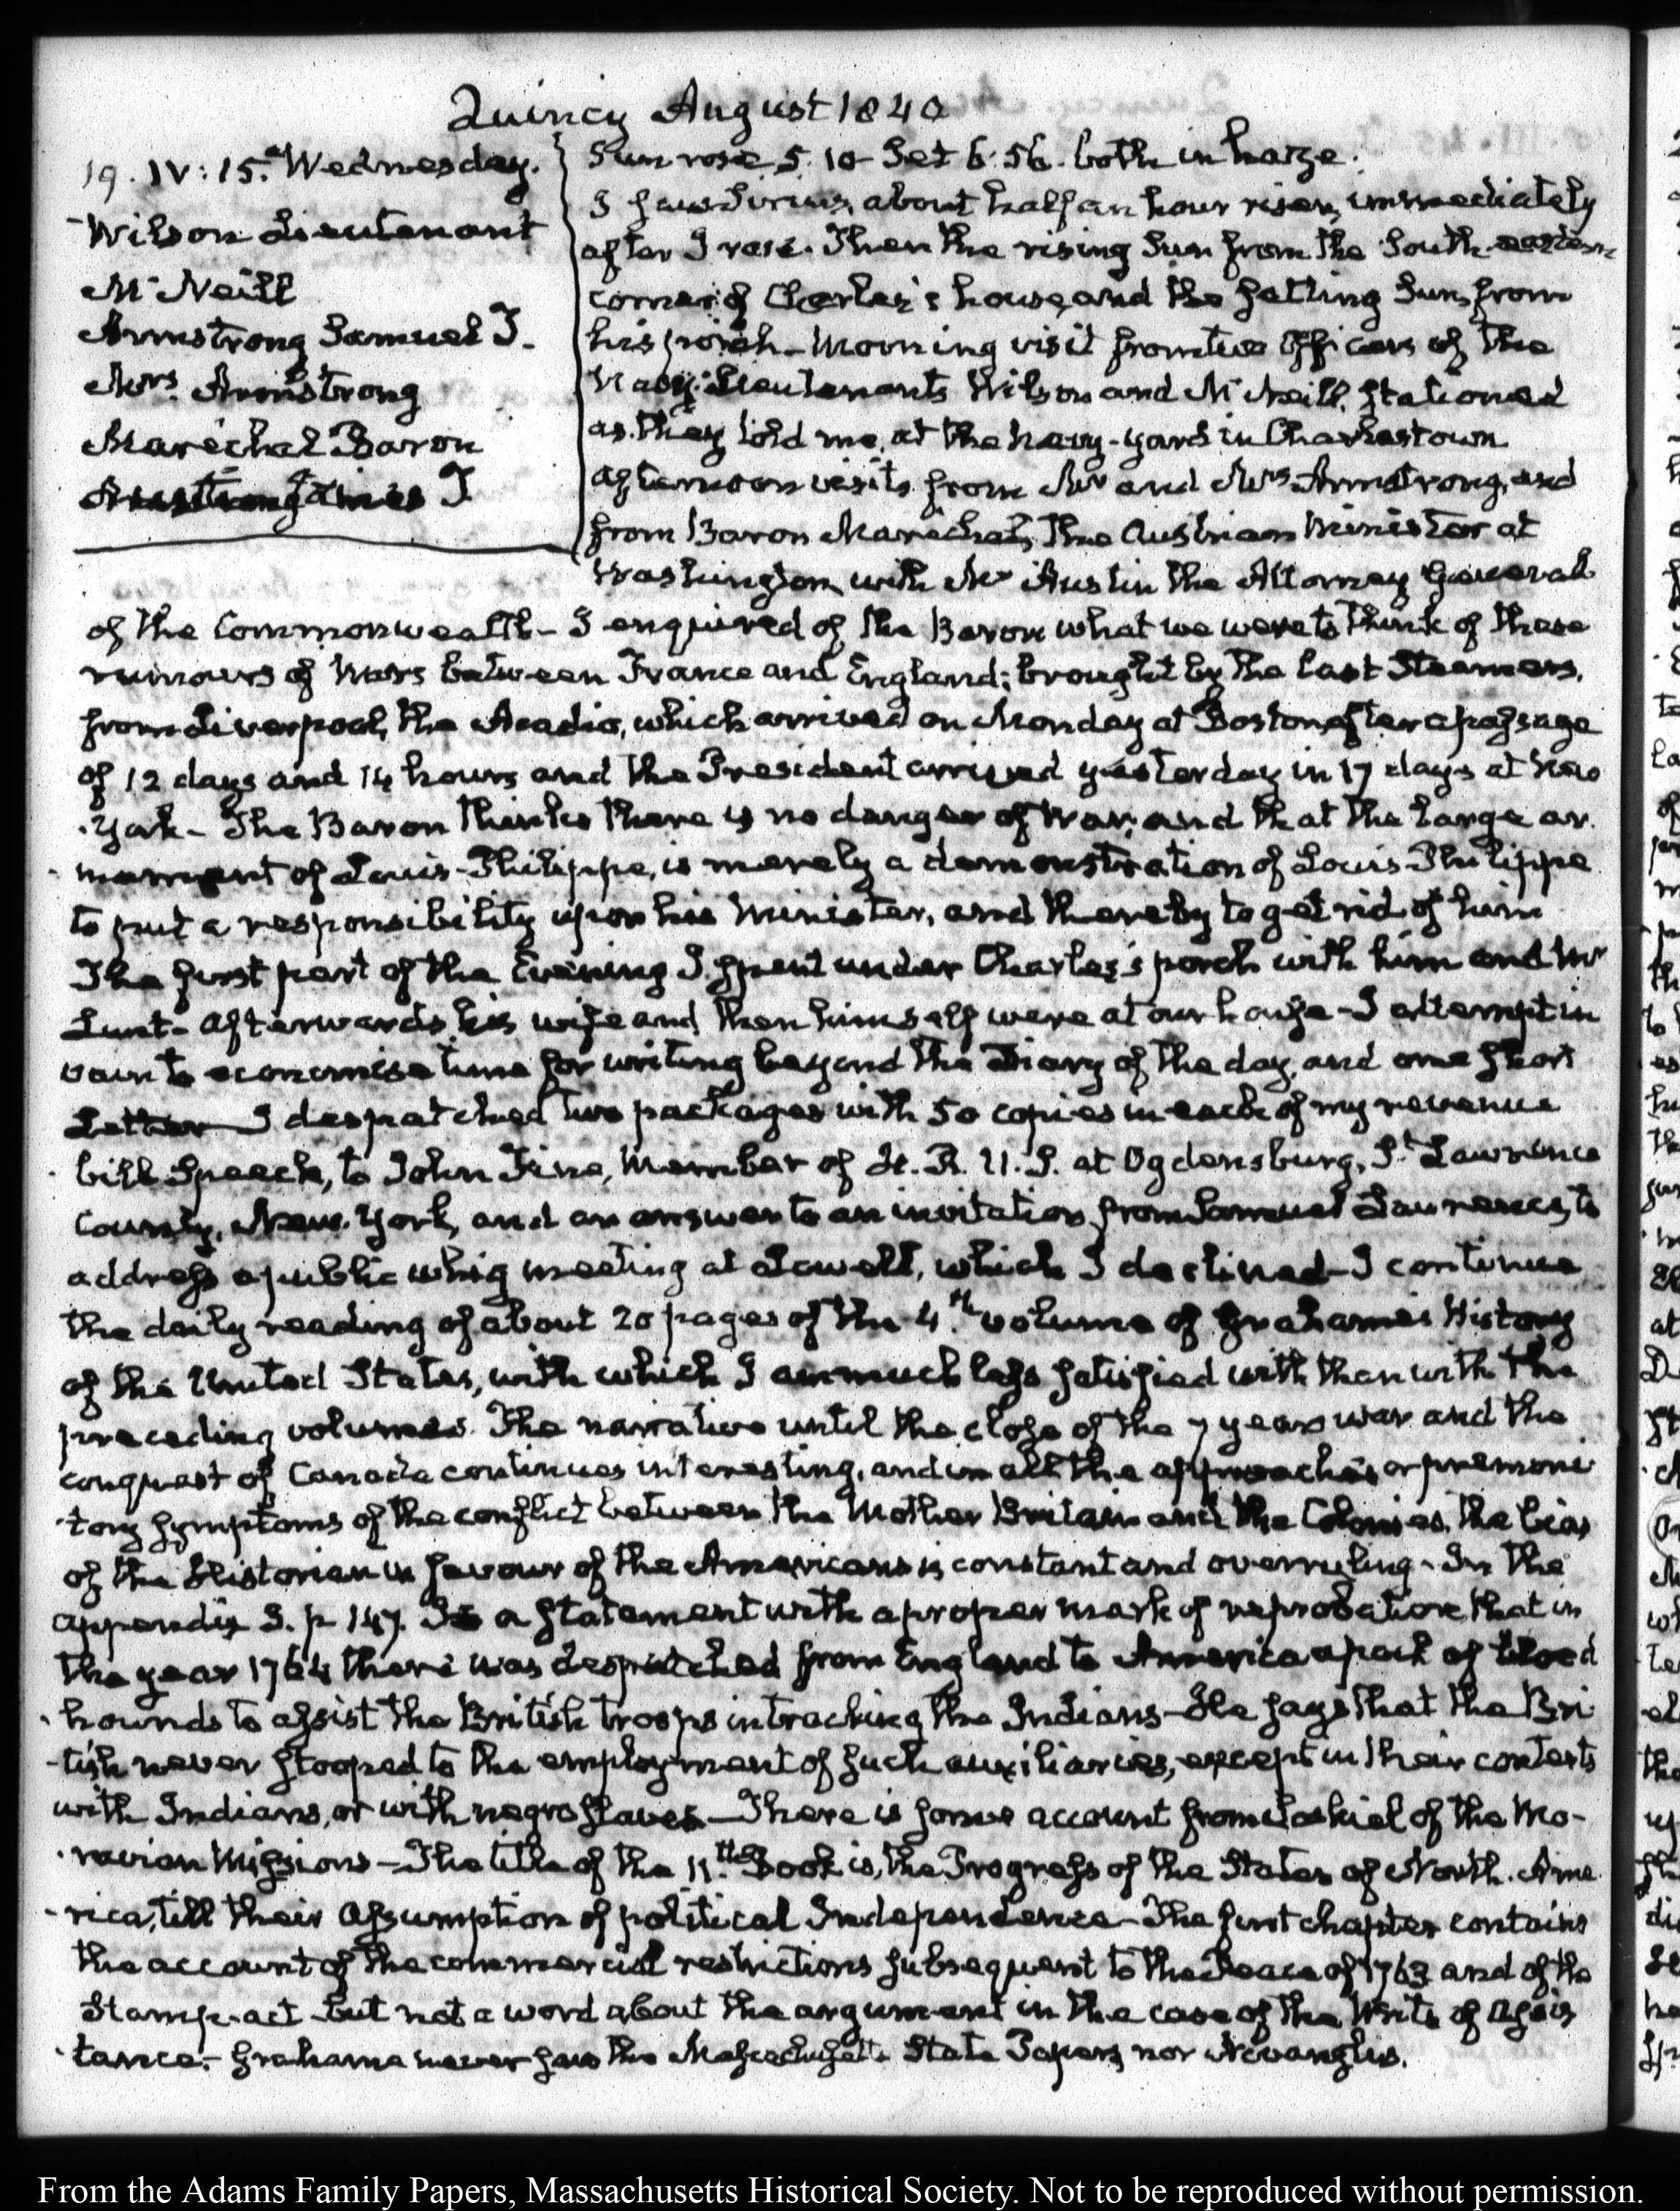 Quincy August 1840
19. IV:15. Wednesday.
Wilson Lieutenant
McNeill
Armstrong Samuel T.
Mrs. Armstrong
Maréchal Baron
T
Sun rose 5. 10 Set 6. 56. both in haze.
I saw Sirius, about half an hour risen, immediately
after I rose. Then the rising Sun from the South-eastern
corner of Charles's house, and the setting Sun, from
his porch_ Morning visit from two Officers of the
Navy. Lieutenants Wilson and McNeill, stationed
as they told me, at the Navy-yard in Charlestown
afternoon visits from Mr and Mrs Armstrong, and
from Baron Maréchal, the Austrian Minister at
Washington, with Mr Austin the Attorney General
of the Commonwealth_ I enquired of the Baron what we were to think of these
rumours of Wars between France and England; brought by the last Steamers,
from Liverpool, the Acadia, which arrived on Monday at Boston after a passage
of 12 days and 14 hours and the President arrived yesterday in 17 days at New
-York_ The Baron thinks there is no danger of War, and that the large ar
-mament of Louis-Philippe, is merely a demonstration of Louis Philippe
to put a responsibility upon his Minister, and thereby to get rid of him
The first part of the Evening I spent under Charles's porch with him and Mr
Lunt_ afterwards his wife and then himself were at our house_ I attempt in
vain to economise time for writing beyond the Diary of the day, and one short
Letter_ I despatched two packages with 50 copies in each of my revenue
bill Speech, to John Fine, Member of H. R. U. S. at Ogdensburg, St. Lawrence
County, New. York, and an answer to an invitation from Samuel Lawrence, to
address a public whig meeting at Lowell, which I declined_ I continue
the daily reading of about 20 pages of the 4.th volume of Grahame's History
of the United States, with which I am much less satisfied with than with the
preceding volumes. The narrative until the close of the 7 years war and the
conquest of Canada continues interesting, and in all the approaches or premoni
-tory symptoms of the conflict between the Mother Britain and the Colonies, the bias
of the Historian in favour of the Americans is constant and overruling_ In the
appendix 3. p 147. Is a statement with a proper mark of reprobation that in
the year 1764 there was despatched from England to America a pack of blood
-hounds to assist the British troops in tracking the Indians_ He says that the Bri
-tish never stooped to the employment of such auxiliaries, except in their contests
with Indians, or with negro slaves_ There is some account from Loskiel of the Mo-
-ravian Missions_ The title of the 11.th Book is, the Progress of the States of North. Ame
-rica, till their Assumption of political Independence_ The first chapter contains
the account of the commercial restrictions subsequent to the Peace of 1763 and of the
Stamp-act but not a word about the argument in the case of the Writs of Assis
-tance._ Grahame never saw the Massachusetts State Papers, nor Novanglus.
From the Adams Family Papers, Massachusetts Historical Society. Not to be reproduced without permission.